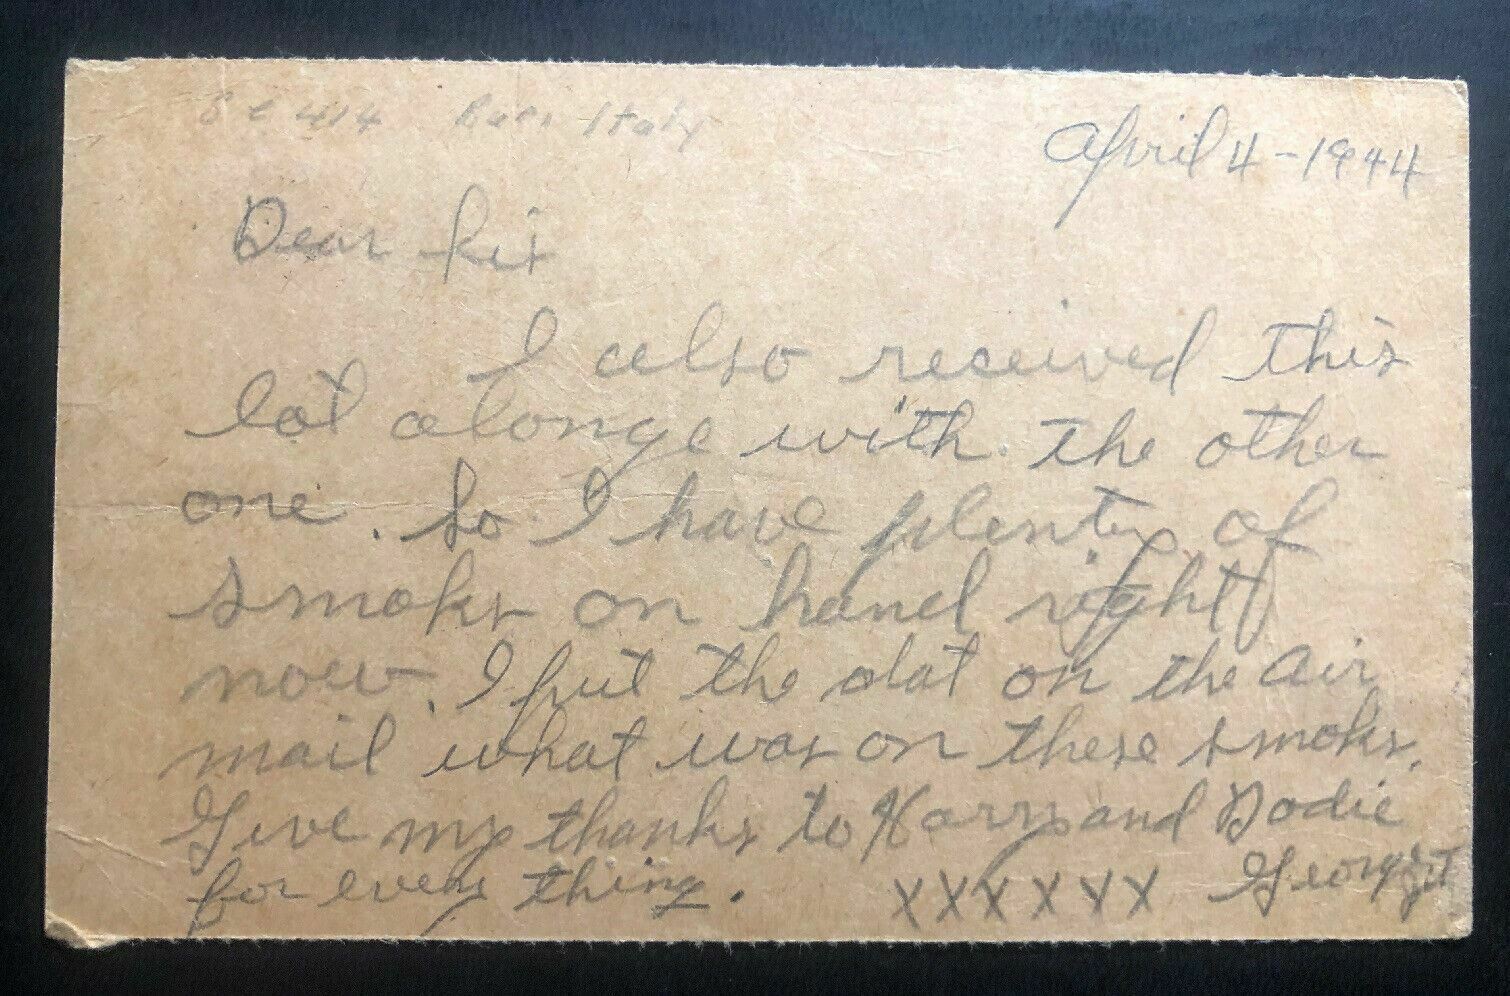 414 Bari Italy
April 4-1944
Dear Kit
I also received this
lot alonge with the other
one. So I have plenty of
smoks on hand right
now. I put the dat on the air
mail what was on these smoks.
Give my thanks to Harry and Dodie
for every thing. XXXXXX George